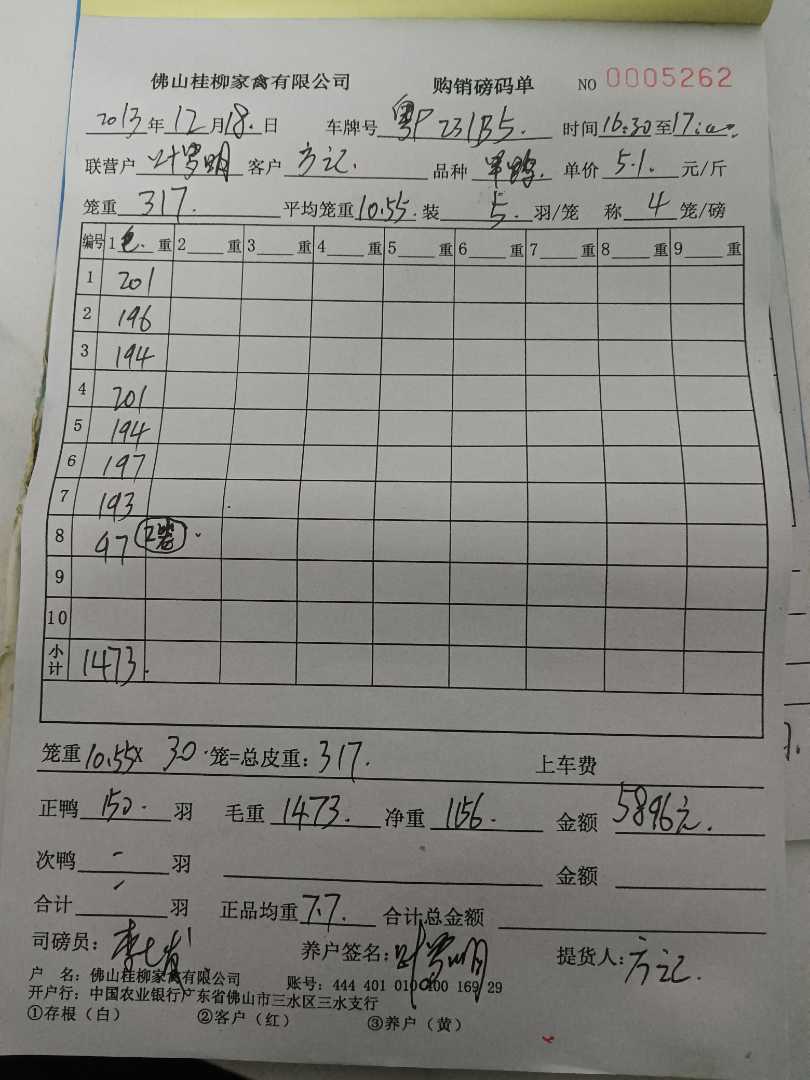 佛山桂柳家禽有限公司 购销磅码单 NO 0005262
2013年12月18.日 车牌号 粤P231B5. 时间16:30至17:
联营户 叶 明 客户 方记. 品种 单价 5.1. 元/斤
笼重 317. 平均笼重10.55.装 5. 羽/笼 称 4 笼/磅
编号 1 重 2 重 3 重 4 重 5 重 6 重 7 重 8 重 9 重
1 201
2 196
3 194
4 201
5 194
6 197
7 193
8 97 2笼.
9
10
小计 1473.
笼重10.55X 30.笼=总皮重:317. 上车费
正鸭 150. 羽 毛重 1473. 净重 1156. 金额 5896元.
次鸭 - 羽 金额
合计 羽 正品均重 7.7. 合计总金额
司磅员: 李 养户签名: 叶 明 提货人: 方记.
户 名: 佛山桂柳家禽有限公司 账号: 444 401 010 400 169 29
开户行: 中国农业银行广东省佛山市三水区三水支行
①存根(白) ②客户(红) ③养户(黄)